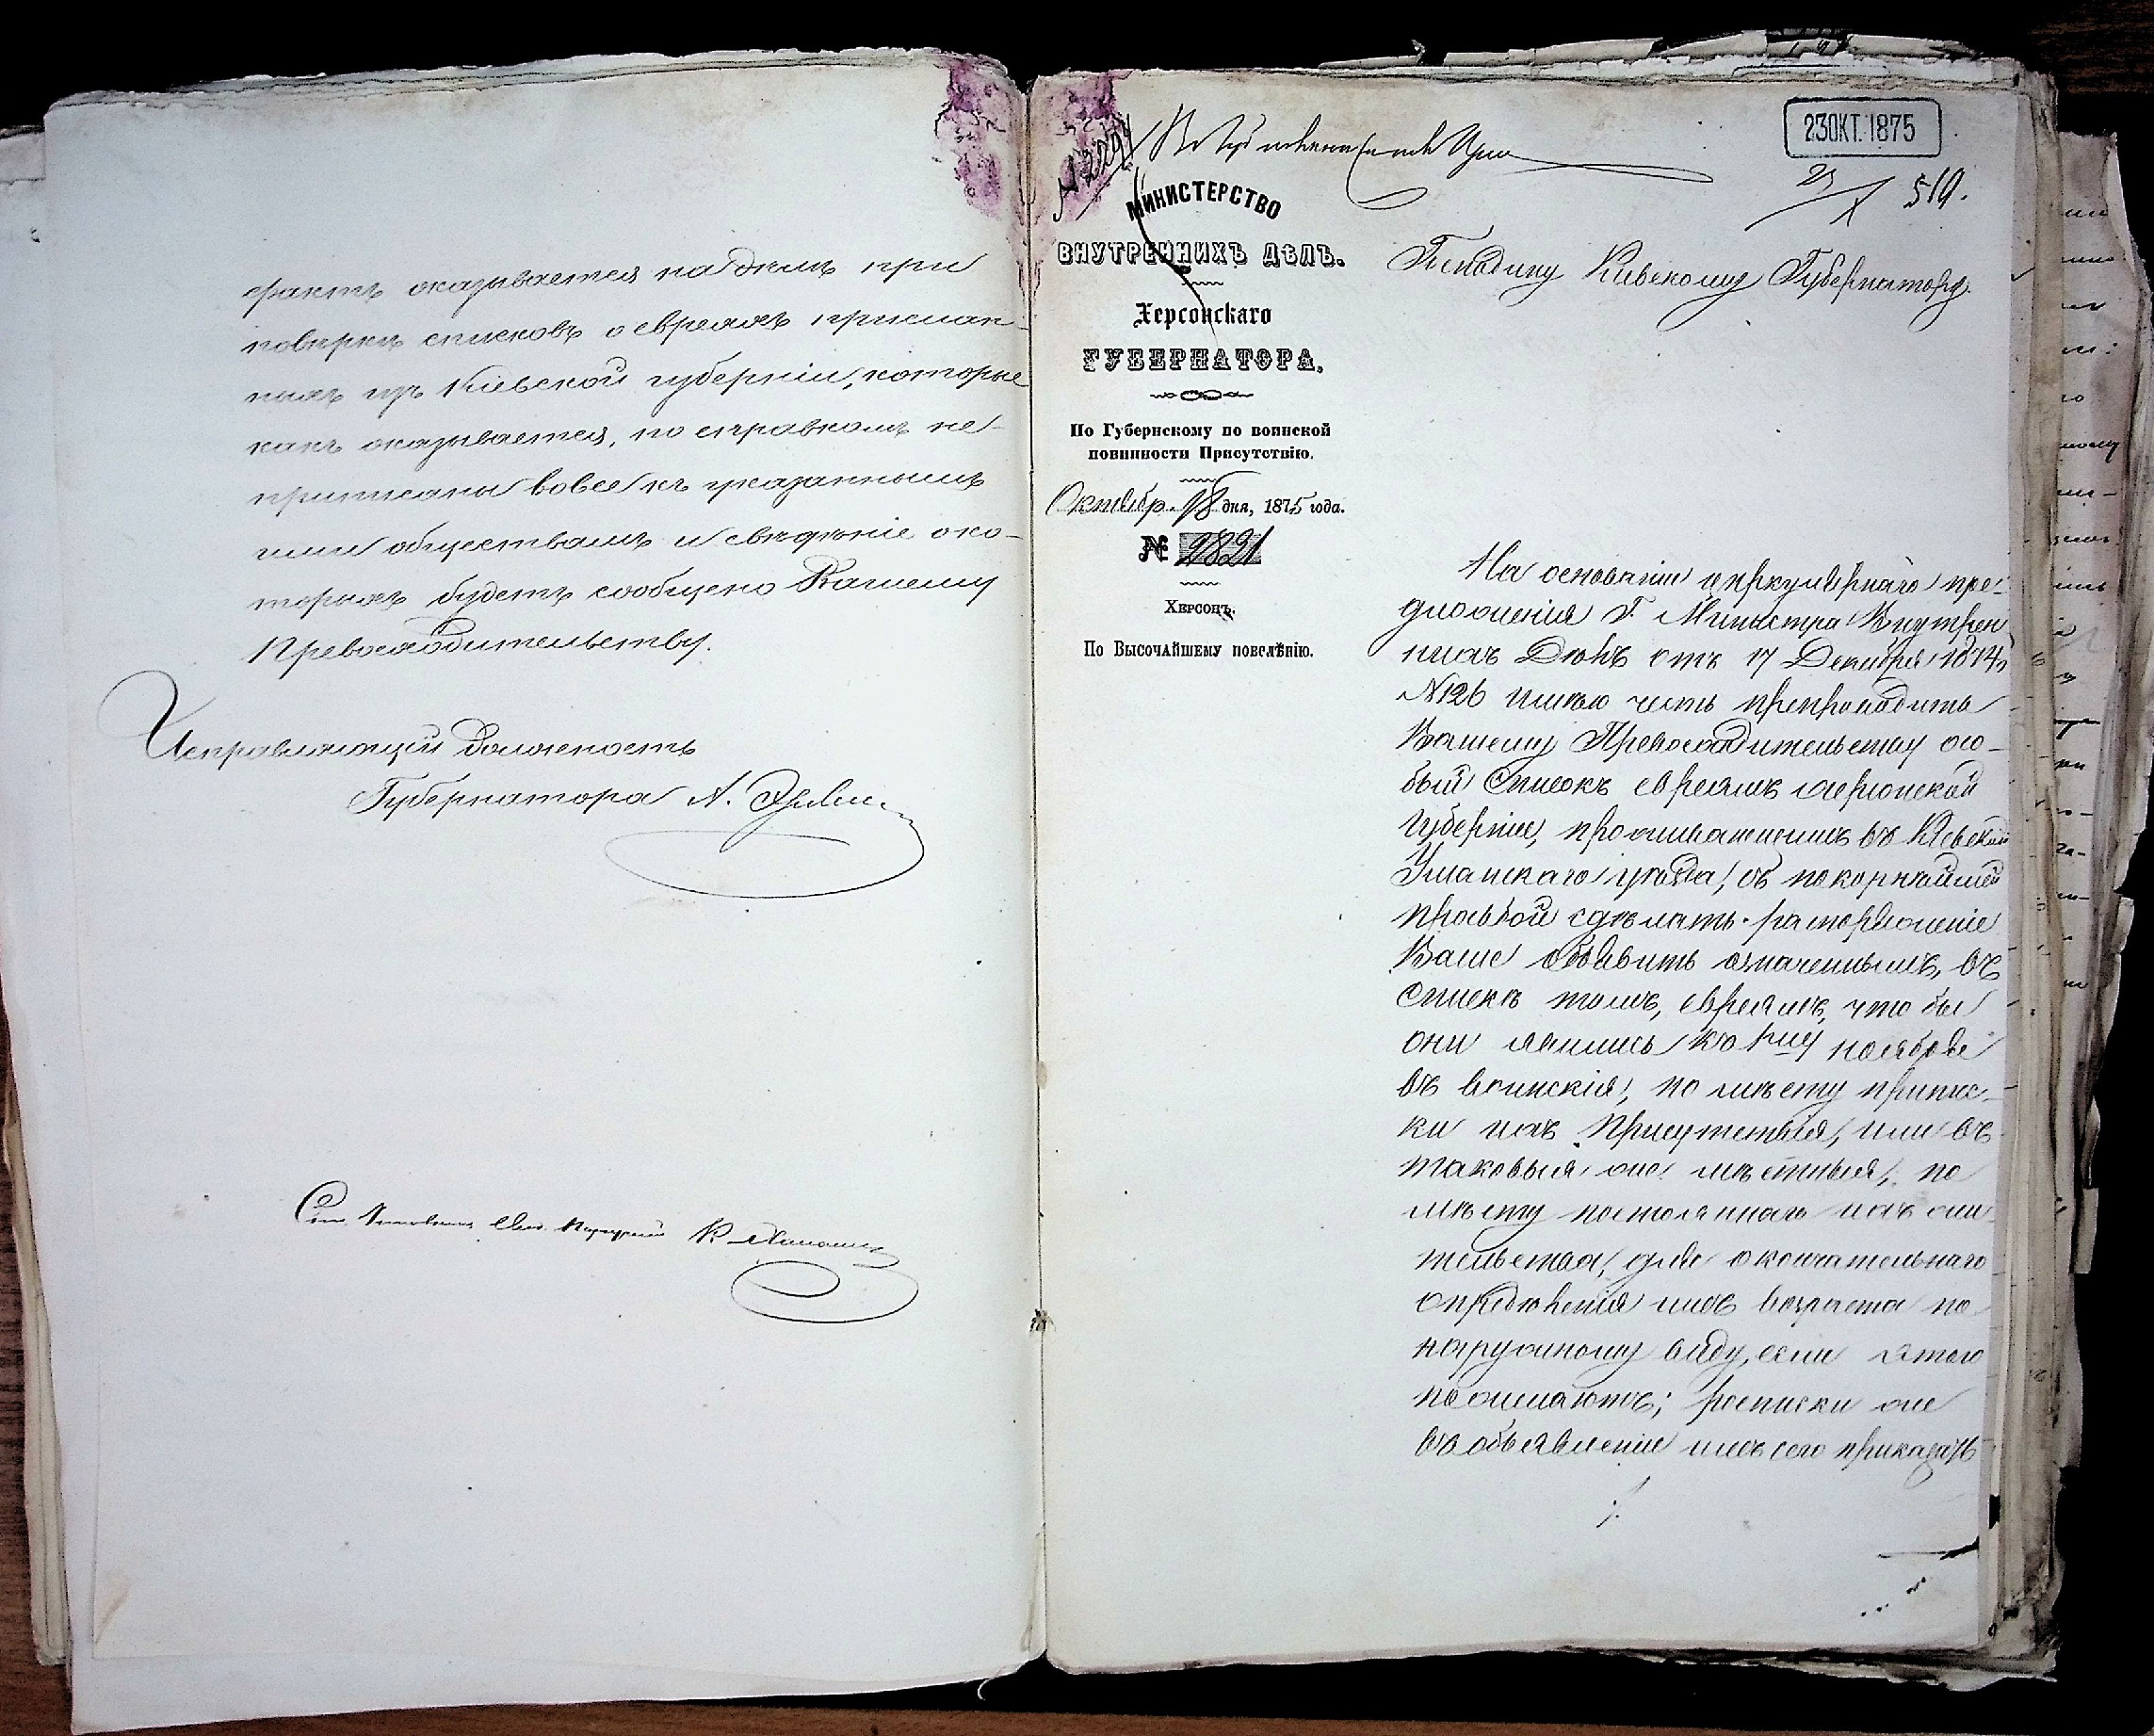 фактъ оказывается на дѣлѣ при
повѣркѣ списковъ о евреяхъ прислан-
ныхъ изъ Кіевской губерніи, которые
какъ оказывается, по справкамъ не-
приписаны вовсе къ указаннымъ
ими обществамъ и свѣдѣніе око-
торыхъ будетъ сообщено Вашему
Превосходительству.
Исправляющій должность
Губернатора А.
23 ОКТ. 1875
23/X 519.
МИНИСТЕРСТВО
ВНУТРЕННИХЪ ДѢЛЪ.
Херсонскаго
ГУБЕРНАТОРА.
По Губернскому по воинской
повинности Присутствію.
Октябр. 18 дня, 1875 года.
№ 2821
Херсонъ.
По Высочайшему повелѣнію.
Господину Кіевскому Губернатору.
На основаніи циркулярнаго пре-
дложенія Г. Министра Внутрен
нихъ Дѣлъ отъ 17 Декабря 1874 г.
№ 126 имѣю честь препроводить
Вашему Превосходительству осо-
бый списокъ евреямъ херсонской
губерніи, проживающимъ въ Кіевской
Уманскаго уѣзда, съ покорнѣйшей
просьбой сдѣлать распоряженіе
Ваше объявить означеннымъ, въ
спискѣ томъ, евреямъ, что бы
они явились къ 1му ноября
въ воинскія, по мѣсту припис-
ки ихъ Присутствія, или въ
таковыя же мѣстныя, по
мѣсту постояннаго ихъ жи
тельства, для окончательнаго
опредѣленія ихъ возраста по
наружному виду, если этого
пожелаютъ; росписки же
въ объявленіи имъ сего приказать